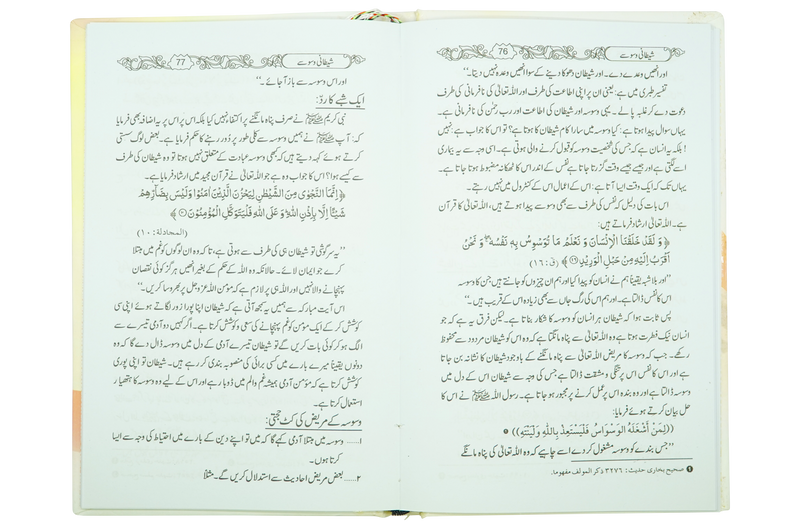 شیطانی وسوسے
76
اور انھیں وعدے دے۔ اور شیطان دھوکا دینے کے سوا انھیں وعدہ نہیں دیتا۔“
تفسیر طبری میں ہے: یعنی ان پر اپنی اطاعت کی طرف اور اللہ تعالیٰ کی نافرمانی کی طرف
دعوت دے کر غلبہ پا لے۔ یہی وسوسہ اور شیطان کی اطاعت اور رب رحمٰن کی نافرمانی ہے۔
یہاں سوال پیدا ہوتا ہے: کیا وسوسہ میں سارا کام شیطان کا ہوتا ہے؟ تو اس کا جواب ہے: نہیں
! بلکہ یہ انسان ہے کہ جس کی شخصیت وسوسہ کو قبول کرنے والی ہوتی ہے۔ اسی وجہ سے یہ بیماری
اسے لگتی ہے اور جیسے جیسے وقت گزرتا جاتا ہے نفس کے اندر اس کا ٹھکانہ مضبوط ہوتا جاتا ہے۔
یہاں تک کہ ایک وقت ایسا آتا ہے: اس کے اعمال اس کے کنٹرول میں نہیں رہتے۔
اس بات کی دلیل کہ نفس کی طرف سے بھی وسوسے پیدا ہوتے ہیں، اللہ تعالیٰ کا قرآن
ہے۔ اللہ تعالیٰ ارشاد فرماتے ہیں:
﴿وَ لَقَدْ خَلَقْنَا الْاِنْسَانَ وَ نَعْلَمُ مَا تُوَسْوِسُ بِهٖ نَفْسُهٗ ۖ وَ نَحْنُ
اَقْرَبُ اِلَیْهِ مِنْ حَبْلِ الْوَرِیْدِ ۝۱۶﴾ (ق: ۱۶)
”اور بلا شبہ یقیناً ہم نے انسان کو پیدا کیا اور ہم ان چیزوں کو جانتے ہیں جن کا وسوسہ
اس کا نفس ڈالتا ہے۔ اور ہم اس کی رگ جاں سے بھی زیادہ اس کے قریب ہیں۔“
پس ثابت ہوا کہ شیطان ہر انسان کو وسوسہ کا شکار بناتا ہے۔ لیکن فرق یہ ہے کہ جو
انسان نیک فطرت ہوتا ہے وہ اللہ تعالیٰ سے پناہ مانگتا ہے کہ وہ اس کو شیطان مردود سے محفوظ
رکھے۔ جب کہ وسوسہ کا مریض اللہ تعالیٰ سے پناہ مانگنے کے باوجود شیطان کا نشانہ بن جاتا
ہے اور اس کا نفس اس پر تنگی و مشقت ڈالتا ہے جس کی وجہ سے شیطان اس کے دل میں
وسوسہ ڈالتا ہے اور وہ بندہ اس پر عمل کرنے پر مجبور ہو جاتا ہے۔ رسول اللہ ﷺ نے اس کا
حل بیان کرتے ہوئے فرمایا:
((لِمَنْ أَشْغَلَهُ الْوَسْوَاسُ فَلْيَسْتَعِذْ بِاللّٰهِ وَلْيَنْتَهِ)) ❶
”جس بندے کو وسوسہ مشغول کر دے اسے چاہیے کہ وہ اللہ تعالیٰ کی پناہ مانگے
❶ صحیح بخاری حدیث: ٣٢٧٦ ذکر المولف مفهوما.
شیطانی وسوسے
77
اور اس وسوسہ سے باز آ جائے۔“
ایک شبے کا ردّ:
نبی کریم ﷺ نے صرف پناہ مانگنے پر اکتفا نہیں کیا بلکہ اس پر یہ اضافہ بھی فرمایا
کہ: آپ ﷺ نے ہمیں وسوسہ سے کلی طور پر دُور رہنے کا حکم فرمایا ہے۔ بعض لوگ سستی
کرتے ہوئے کہہ دیتے ہیں کہ کبھی وسوسہ عبادت کے متعلق نہیں ہوتا تو وہ شیطان کی طرف
سے کیسے ہوا؟ اس کا جواب وہ ہے جو اللہ تعالیٰ نے قرآن مجید میں ارشاد فرمایا ہے۔
﴿اِنَّمَا النَّجْوٰى مِنَ الشَّیْطٰنِ لِیَحْزُنَ الَّذِیْنَ اٰمَنُوْا وَلَیْسَ بِضَآرِّهِمْ
شَیْـًٔا اِلَّا بِاِذْنِ اللّٰهِ وَ عَلَى اللّٰهِ فَلْیَتَوَكَّلِ الْمُؤْمِنُوْنَ ۝۱۰﴾
(المجادلة: ۱۰)
”یہ سرگوشی تو شیطان ہی کی طرف سے ہوتی ہے، تاکہ وہ ان لوگوں کو غم میں مبتلا
کرے جو ایمان لائے۔ حالانکہ وہ اللہ کے حکم کے بغیر انھیں ہرگز کوئی نقصان
پہنچانے والا نہیں اور اللہ ہی پر لازم ہے کہ مؤمن اللہ عز و جل پر بھروسا کریں۔“
اس آیت مبارکہ سے ہمیں یہ سمجھ آتی ہے کہ شیطان اپنا پورا زور لگاتے ہوئے اپنی سی
کوشش کر کے ایک مؤمن کو غم پہنچانے کی سعی و کوشش کرتا ہے۔ اگر کہیں دو آدمی تیسرے سے
الگ ہو کر کوئی بات کریں گے تو شیطان تیسرے آدمی کے دل میں وسوسہ ڈال دے گا کہ وہ
دونوں یقیناً میرے بارے میں کسی برائی کی منصوبہ بندی کر رہے ہیں۔ شیطان تو اپنی پوری
کوشش کرتا ہے کہ مؤمن آدمی ہمیشہ غم و الم میں ڈوبا رہے اور اس کے لیے وہ وسوسہ کا ہتھیار
استعمال کرتا ہے۔
وسوسہ کے مریض کی کٹ حجتی:
۱..... وسوسہ میں مبتلا آدمی کہے گا کہ میں تو اپنے دین کے بارے میں احتیاط کی وجہ سے ایسا
کرتا ہوں۔
۲..... بعض مریض احادیث سے استدلال کریں گے۔ مثلاً